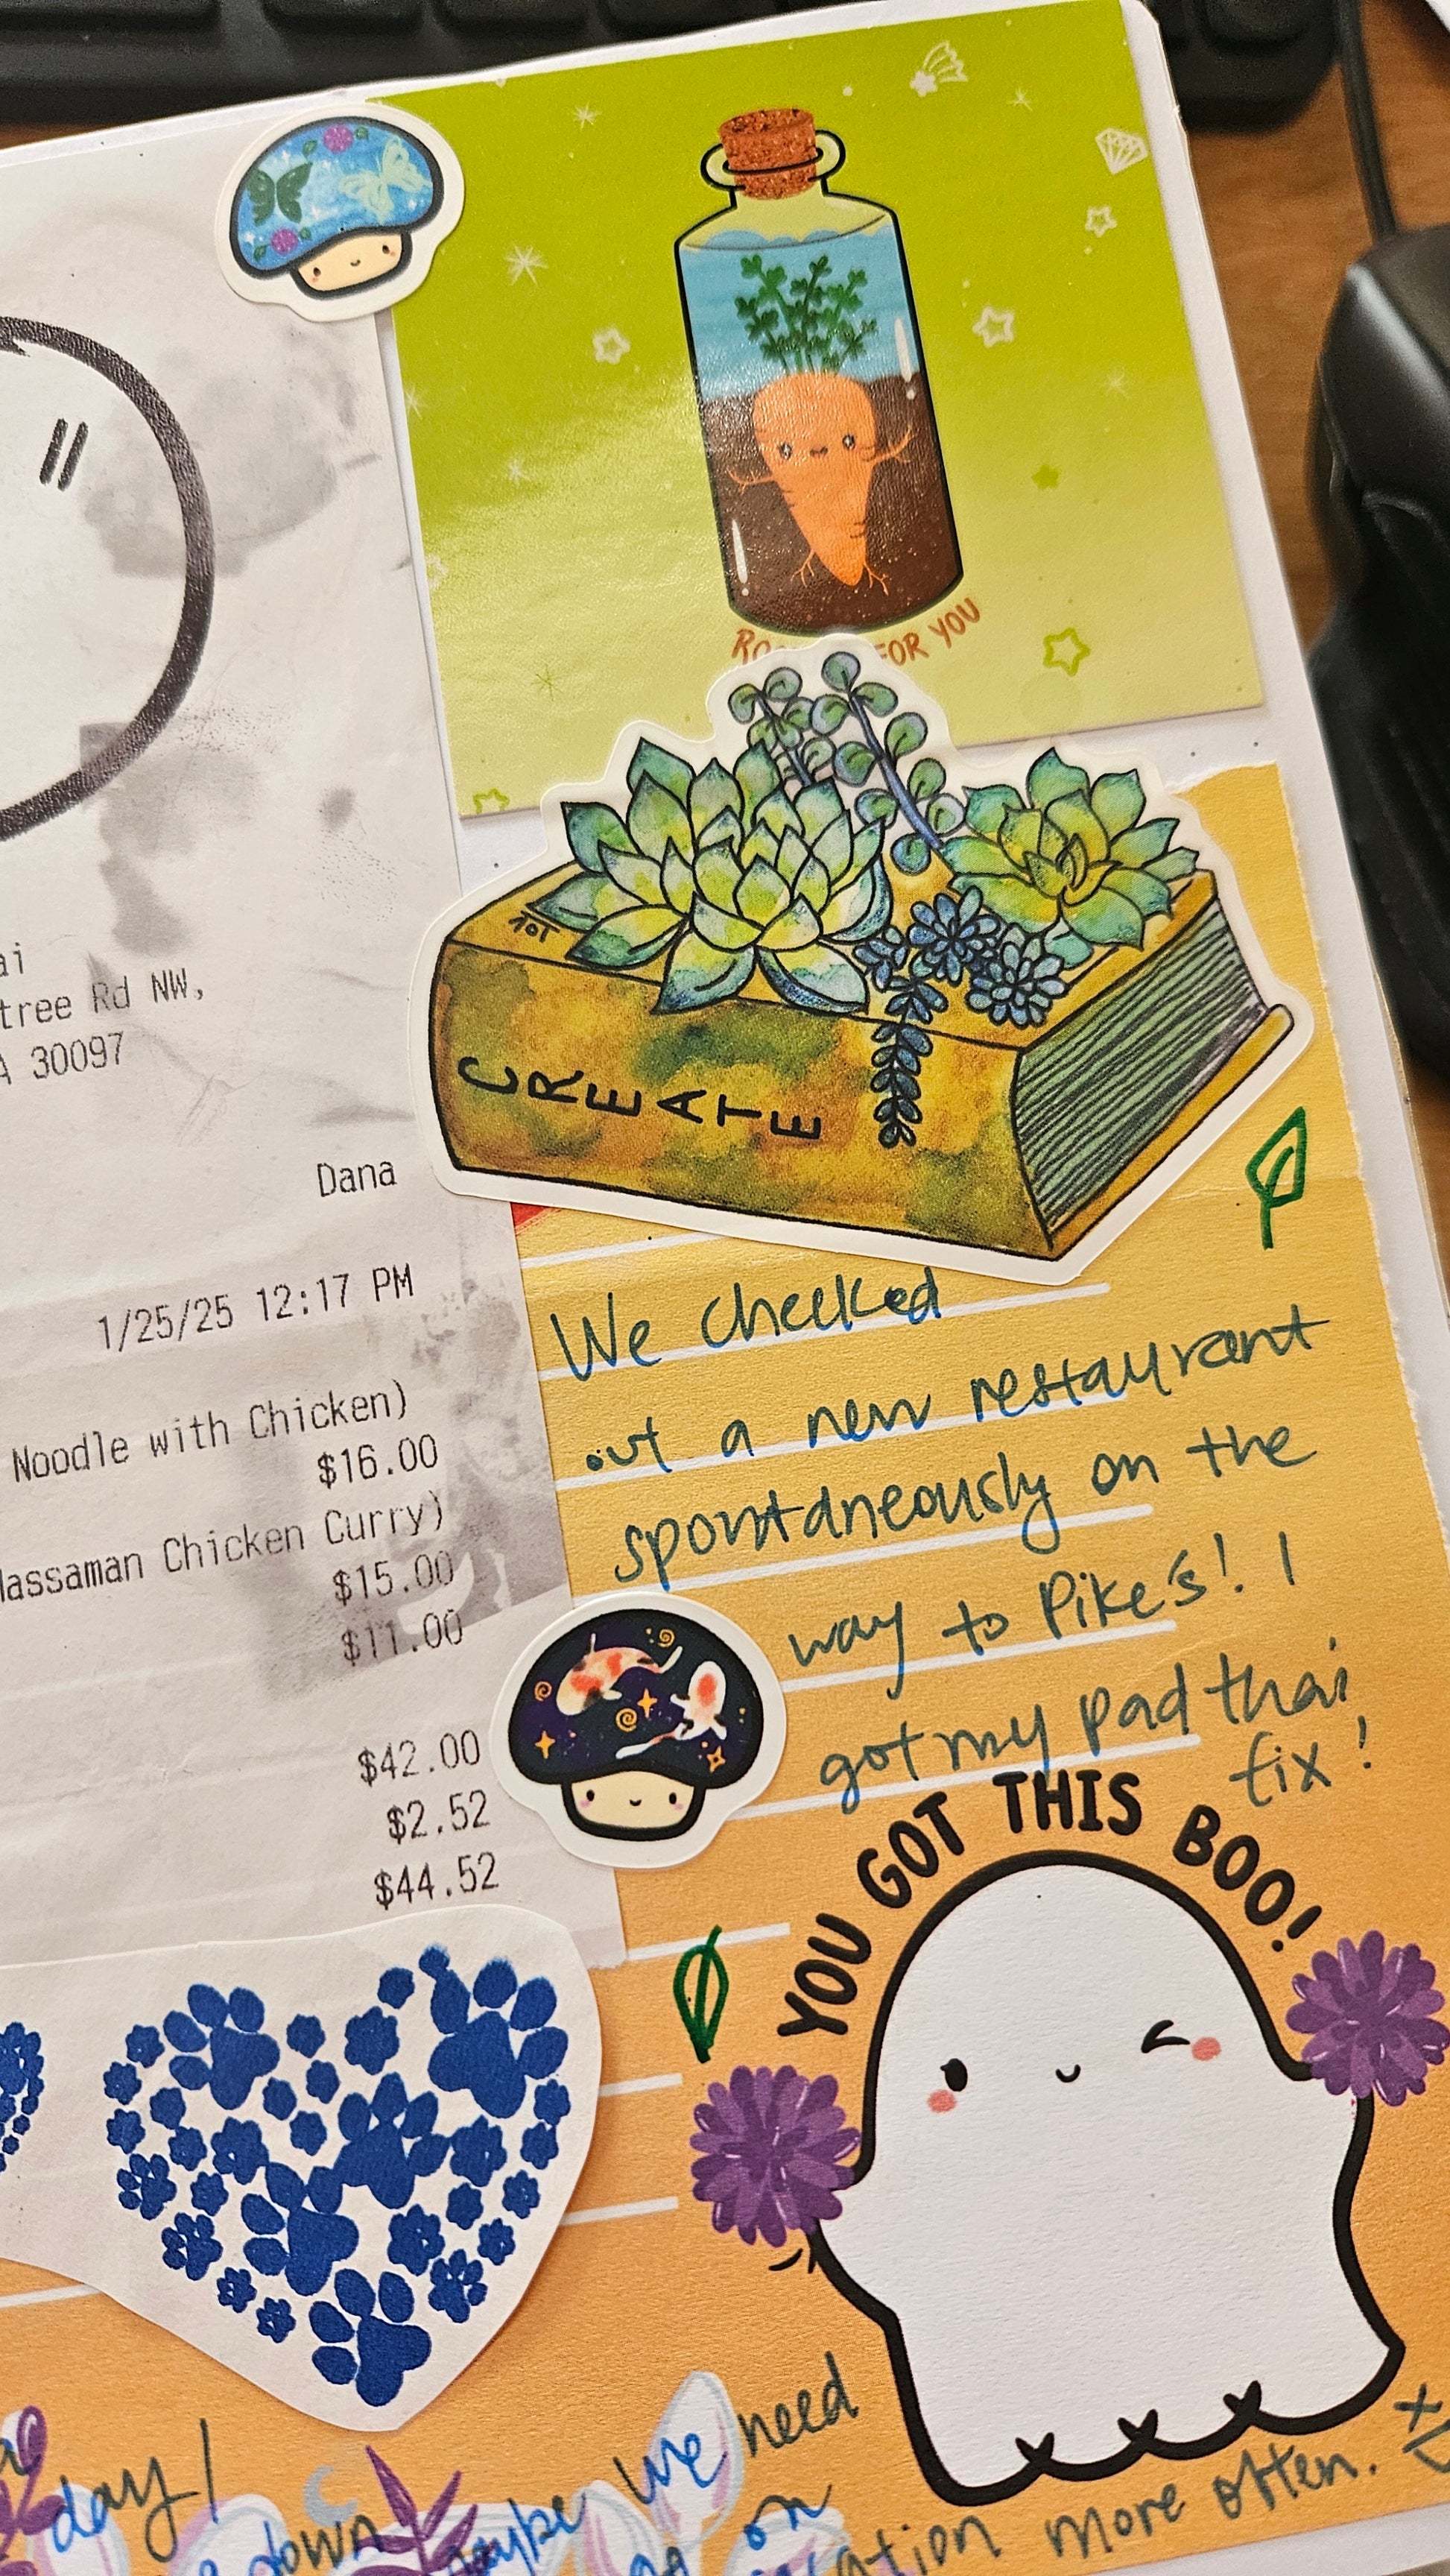 FOR YOU
CREATE
tree Rd NW,
30097
Dana
1/25/25 12:17 PM
Noodle with Chicken)
$16.00
Chicken Curry)
$15.00
$11.00
$42.00
$2.52
$44.52
We checked
out a new restaurant
spontaneously on the
way to Pike's! I
got my pad thai
fix!
YOU GOT THIS BOO!
day!
down maybe we need
on
more often.